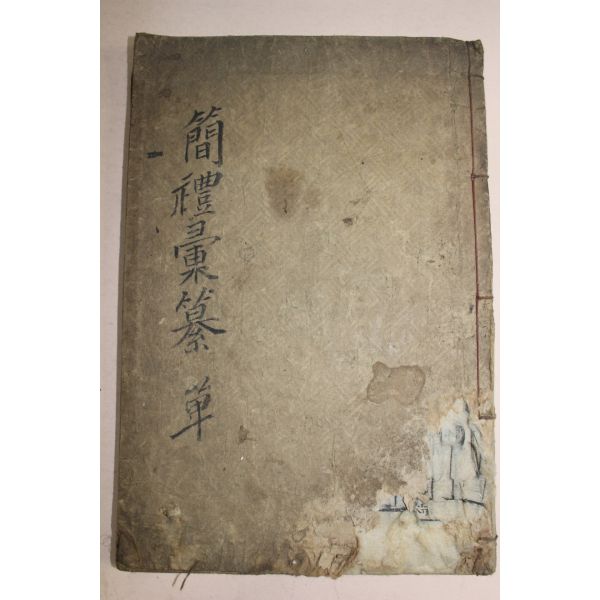 簡禮彙纂 单